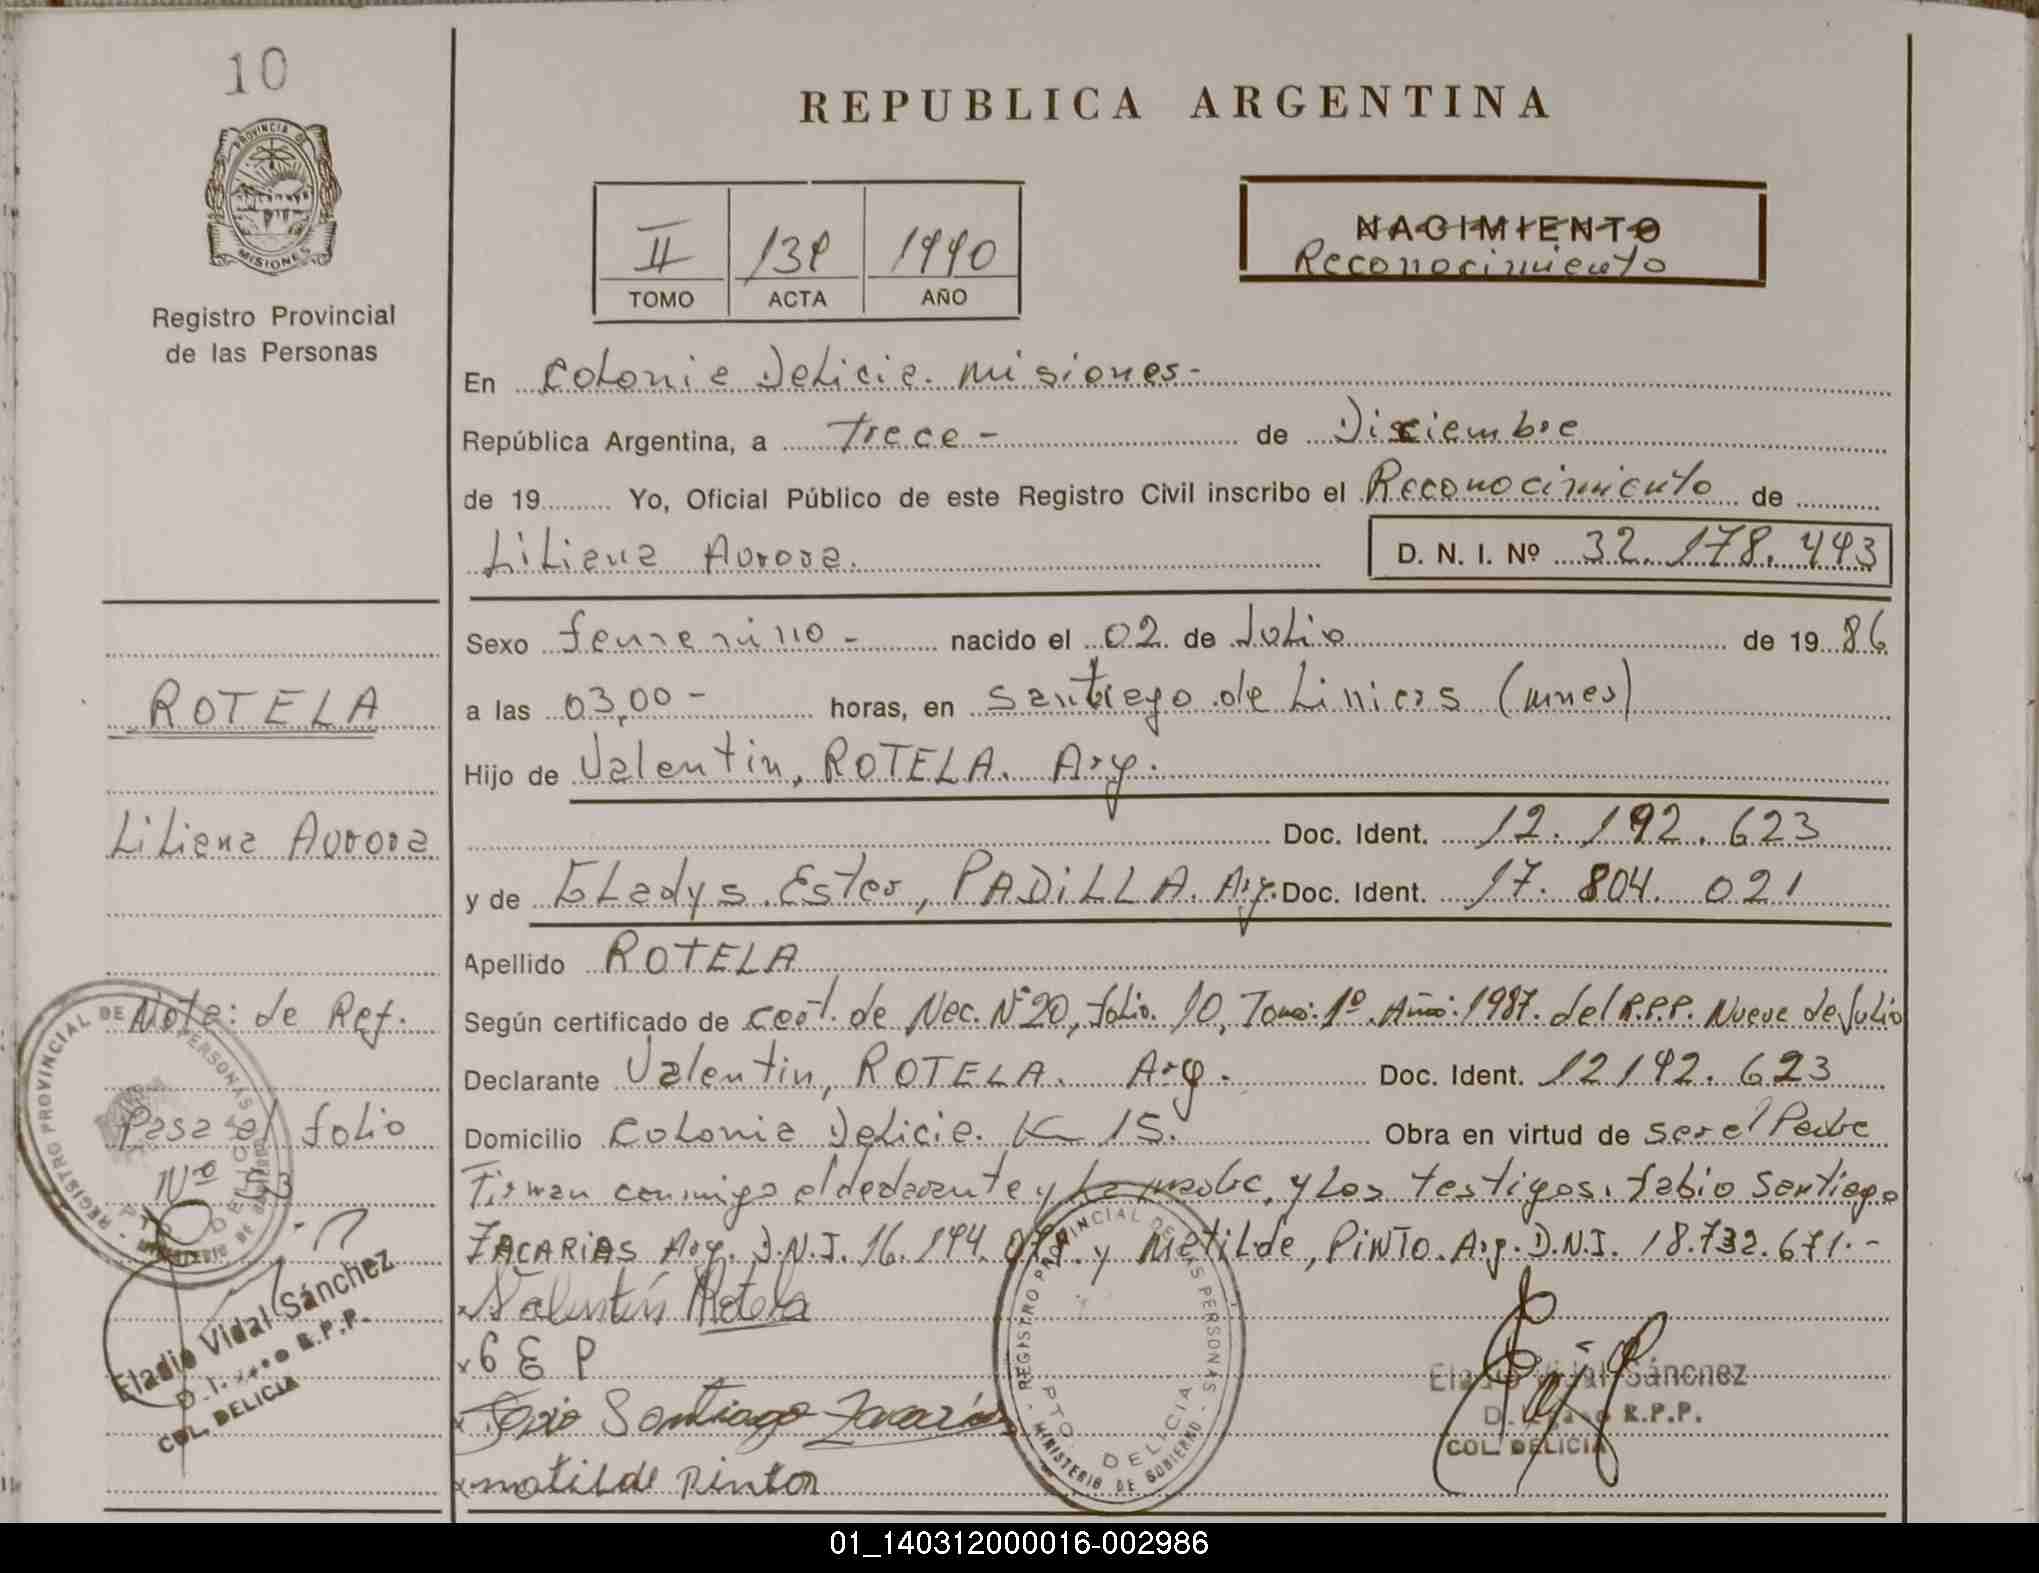 10
PROVINCIA DE
MISIONES
Registro Provincial
de las Personas
ROTELA
Liliana Aurora
Nota: de Ref.
Pasa al folio
Nº
REGISTRO PROVINCIAL DE LAS PERSONAS
Eladio Vidal Sánchez
R.P.P.
COL. DELICIA
REPUBLICA ARGENTINA
II 139 1990
TOMO ACTA AÑO
NACIMIENTO
Reconocimiento
En Colonia Delicia. Misiones-
República Argentina, a Trece- de Diciembre
de 19 Yo, Oficial Público de este Registro Civil inscribo el Reconocimiento de
Liliana Aurora. D. N. I. Nº 32.178.443
Sexo femenino- nacido el 02 de Julio de 1986
a las 03,00- horas, en Santiago de Liniers (mnes)
Hijo de Valentin, ROTELA. Arg.
Doc. Ident. 12.192.623
y de Gladys Ester, PADILLA. Arg. Doc. Ident. 17.804.021
Apellido ROTELA
Según certificado de cert. de Nac. Nº 20, folio. 10, Tomo: 1º. Año: 1987. del R.P.P. Nueve de Julio
Declarante Valentin, ROTELA. Arg. Doc. Ident. 12192.623
Domicilio Colonia Delicia. K 15. Obra en virtud de ser el Padre
Firman conmigo el declarante y la madre, y los testigos. fabio Santiago
ZACARIAS Arg. D.N.I. 16.194. y Matilde, PINTO. Arg. D.N.I. 18.732.671.-
x Valentín Rotela
x G E P
x Fabio Santiago Zacarías
x matilde Pinto
REGISTRO PROVINCIAL DE LAS PERSONAS
PTO. DELICIA
MINISTERIO DE GOBIERNO
Eladio Vidal Sánchez
R.P.P.
COL. DELICIA
01_140312000016-002986